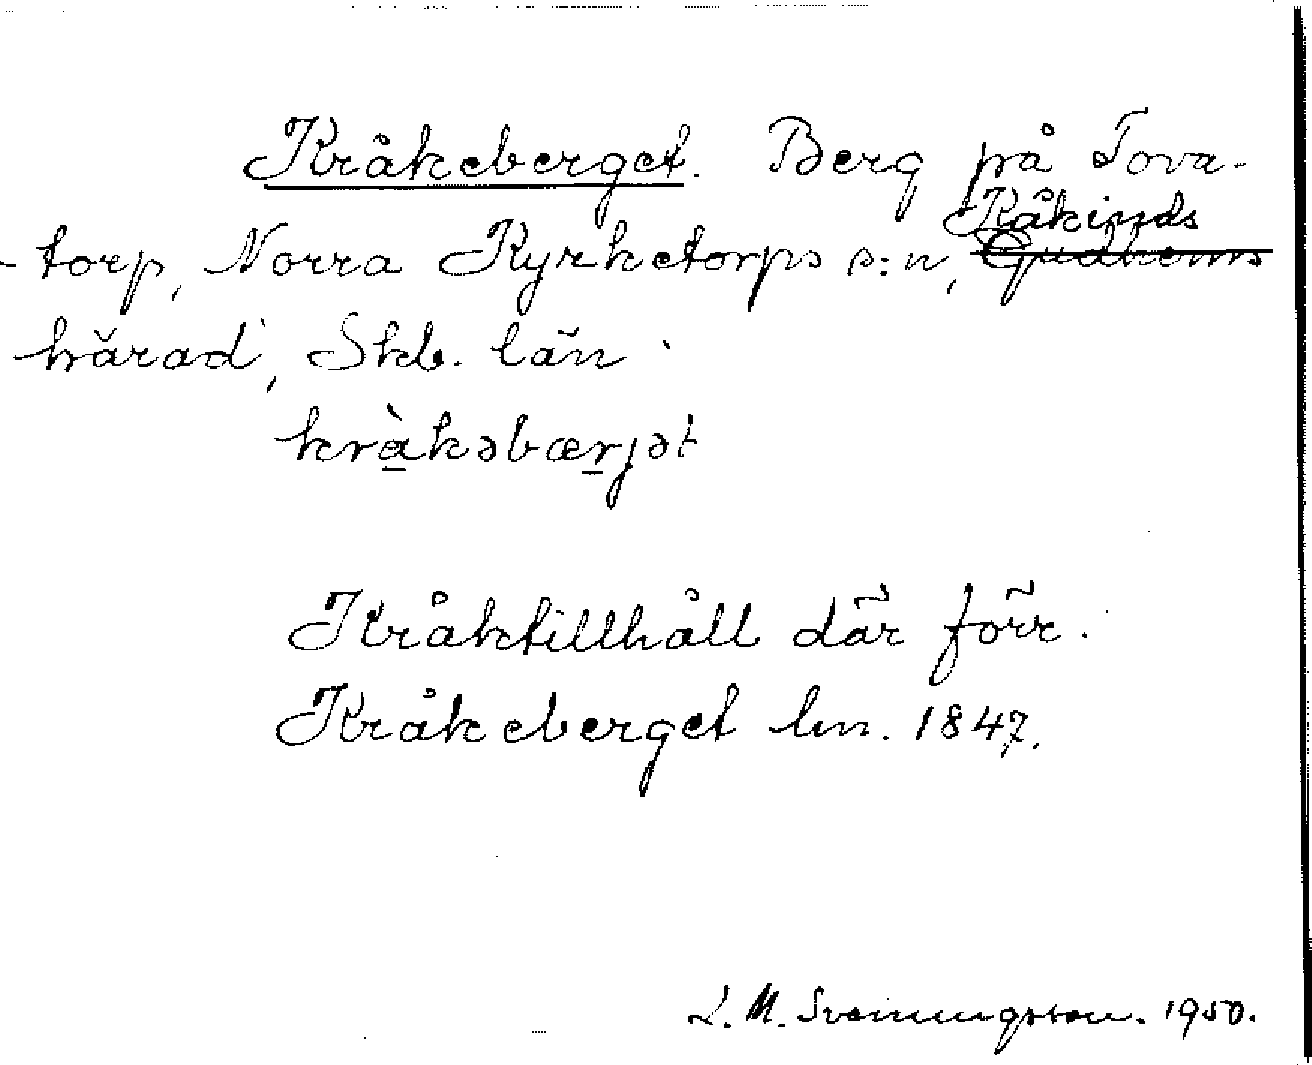 Kråkeberget. Berg på Tova-
Kåkinds
torp, Norra Kyrketorps s:n, Gudhems
härad, Skb. län.
krà̱kəbæṟjət
Kråktillhåll där förr.
Kråkeberget lm. 1847.
L. M. Svenningsson. 1950.